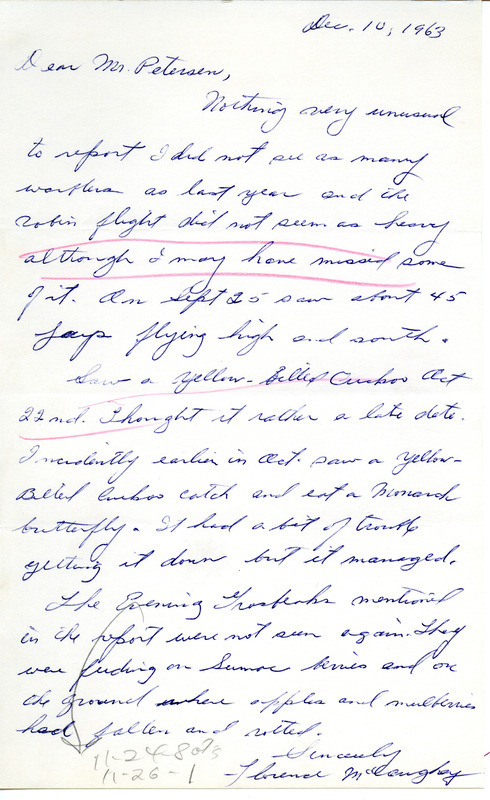 Dec. 10, 1963
Dear Mr. Petersen,
Nothing very unusual
to report I did not see as many
warblers as last year and the
robin flight did not seem as heavy
although I may have missed some
of it. On Sept 25 saw about 45
Jays flying high and south.
Saw a Yellow-Billed Cuckoo Oct
22nd. Thought it rather a late date.
Incidently earlier in Oct. saw a Yellow-
Billed Cuckoo catch and eat a Monarch
butterfly. It had a bit of trouble
getting it down but it managed.
The Evening Grosbeaks mentioned
in the report were not seen again. They
were feeding on Sumac berries and on
the ground where apples and mulberries
had fallen and rotted.
Sincerely
Florence McCaughey
11-24-8
11-26-1